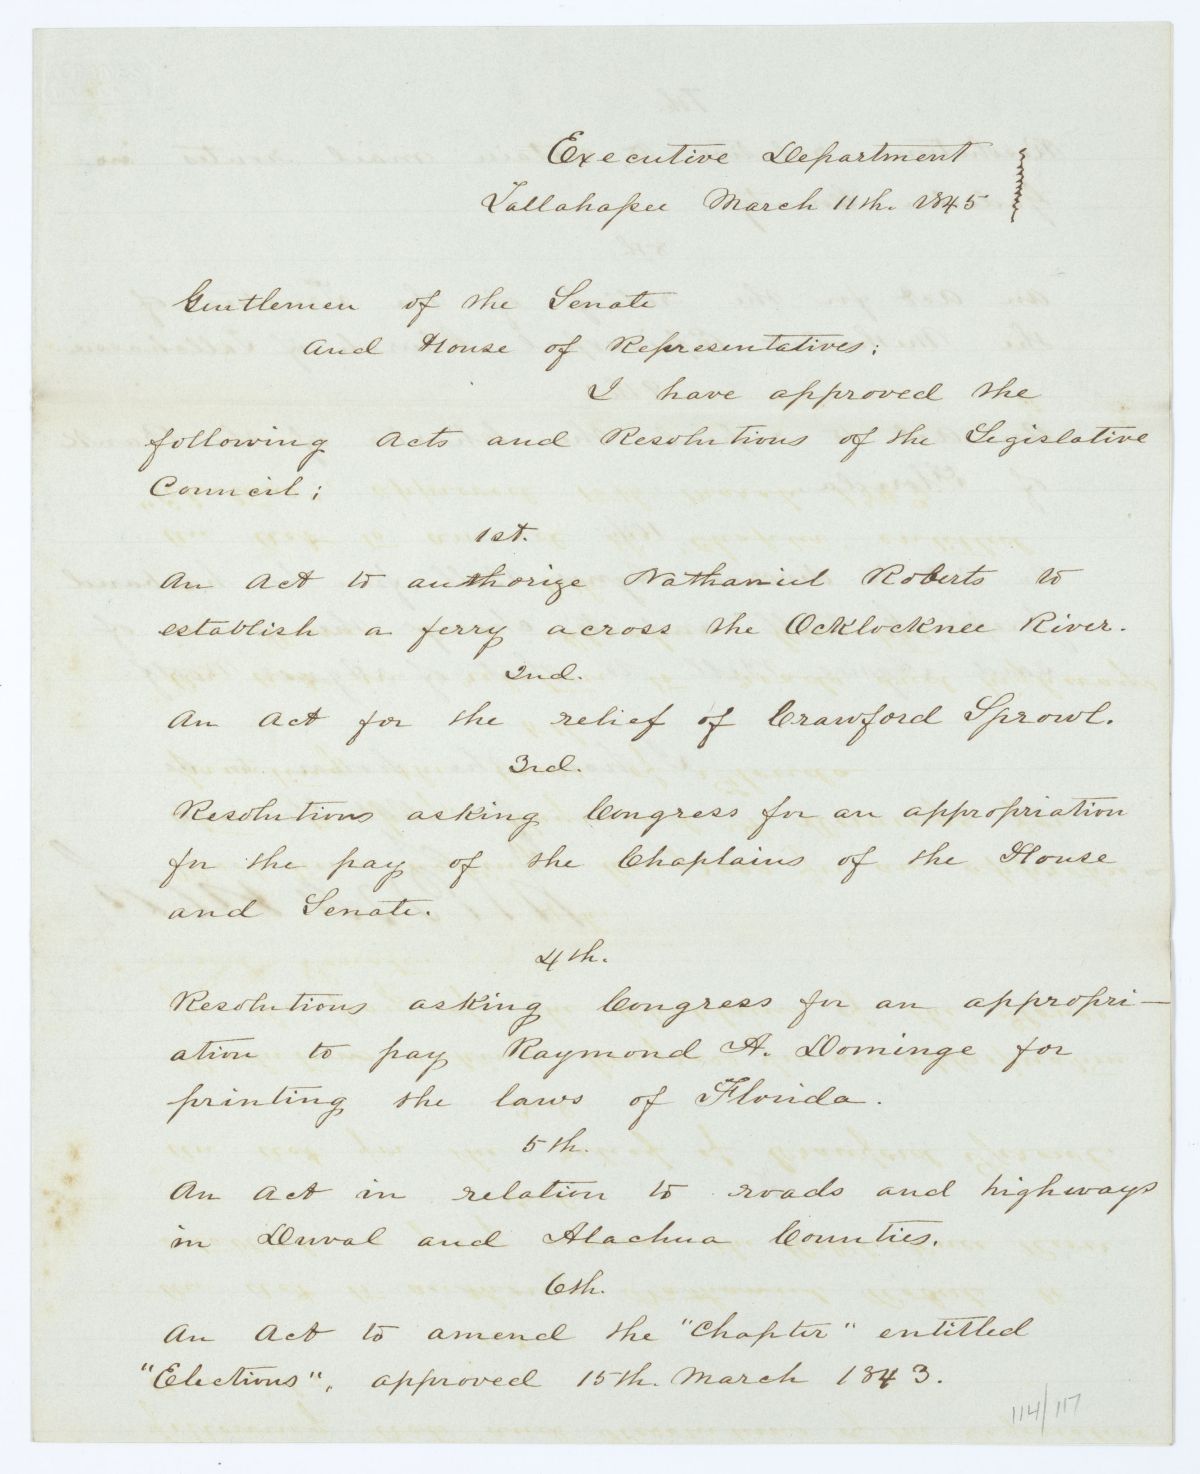 Executive Department
Tallahassee March 11th. 1845
Gentlemen of the Senate
and House of Representatives;
I have approved the
following Acts and Resolutions of the Legislative
Council;
1st.
An Act to authorize Nathaniel Roberts to
establish a ferry across the Ocklocknee River.
2nd.
An Act for the relief of Crawford Sprowl.
3rd.
Resolutions asking Congress for an appropriation
for the pay of the Chaplains of the House
and Senate.
4th.
Resolutions asking Congress for an appropri-
ation to pay Raymond A. Dominge for
printing the laws of Florida.
5th.
An Act in relation to roads and highways
in Duval and Alachua Counties.
6th.
An Act to amend the "Chapter" entitled
"Elections", approved 15th. March 1843.
114/117